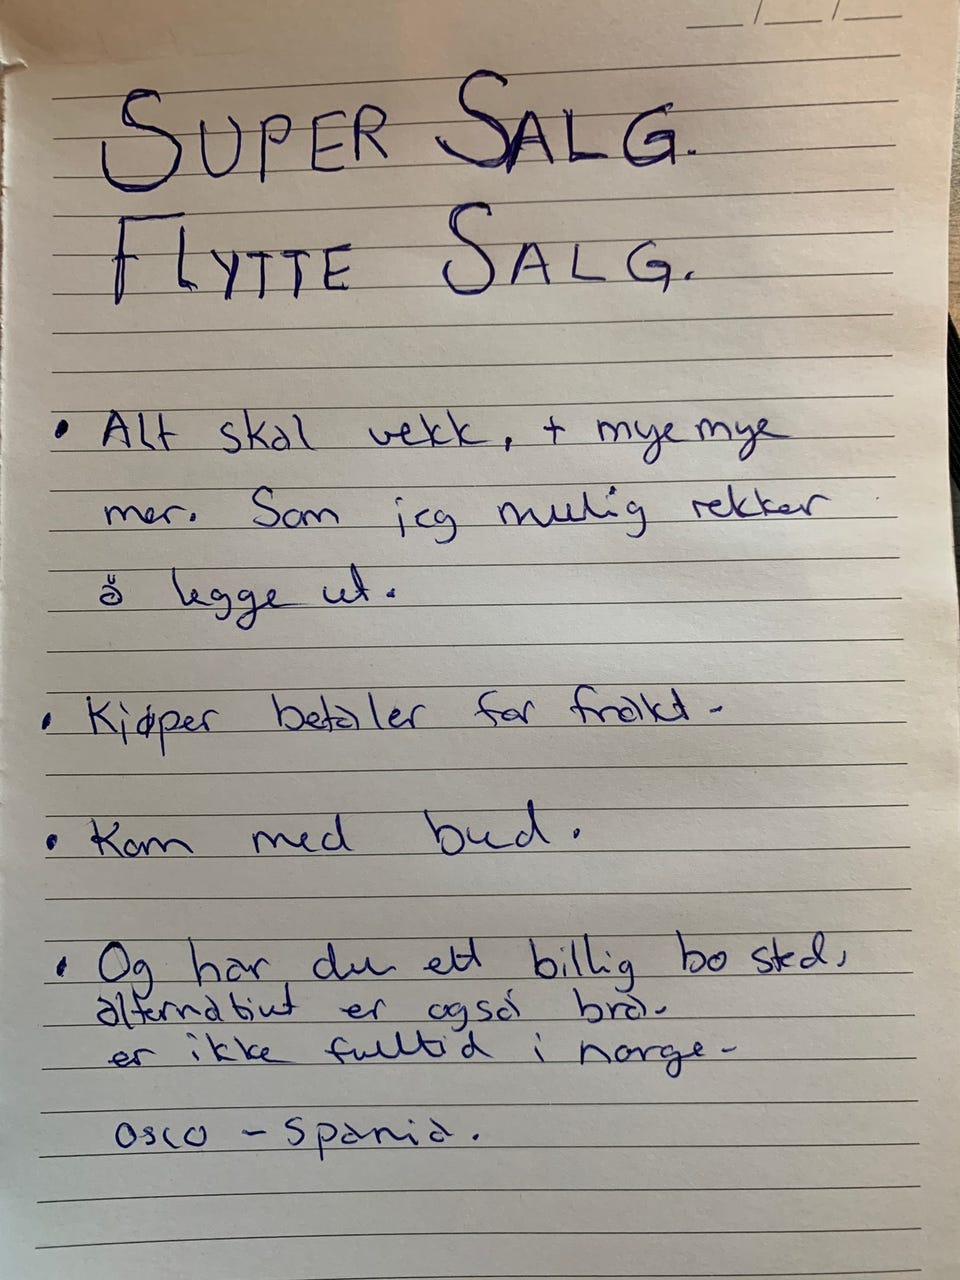 SUPER SALG.
FLYTTE SALG.
• Alt skal vekk, + mye mye
mer. Som jeg mulig rekker
å legge ut.
• Kjøper betaler for frakt -
• Kom med bud.
• Og har du ett billig bo sted,
alternativt er også bra.
er ikke fulltid i norge -
OSLO - Spania.